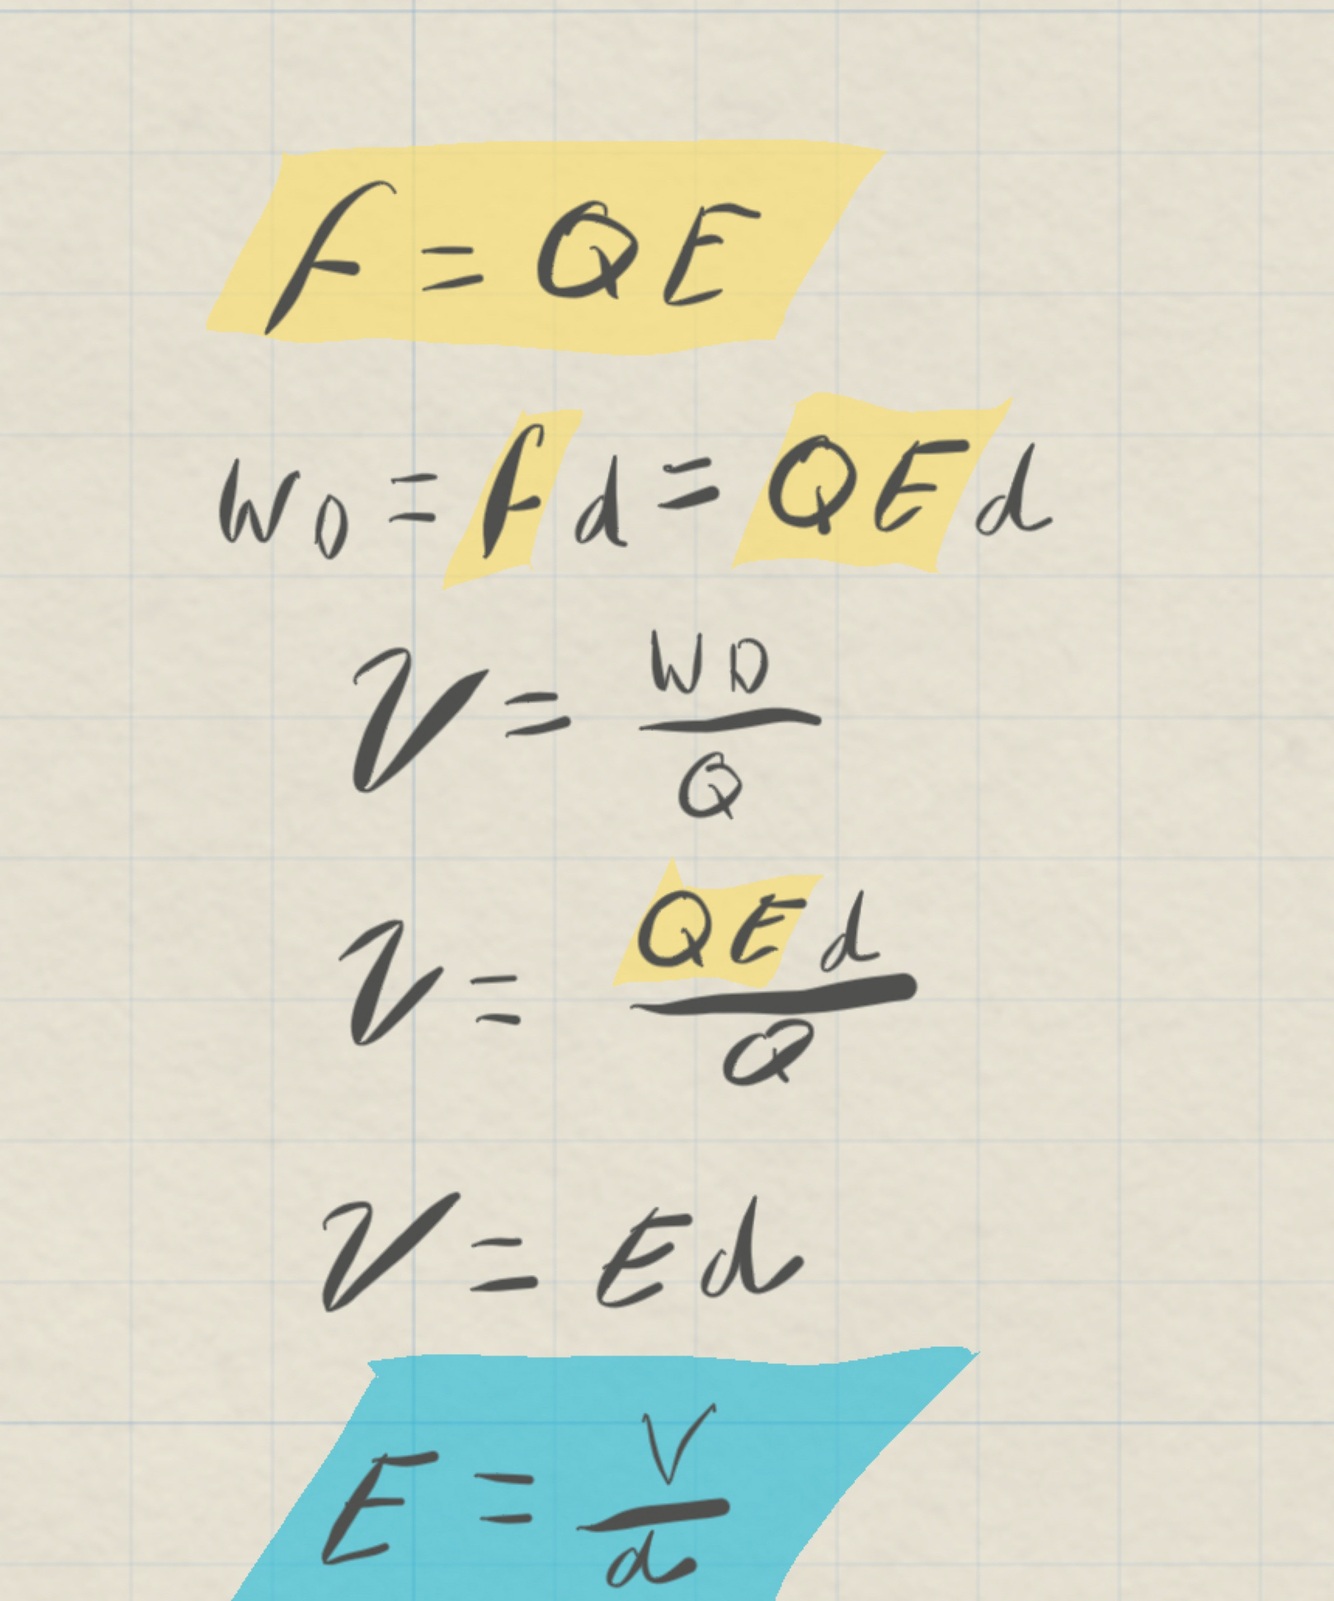 F = QE
WD = Fd = QEd
V = WD/Q
V = QEd/Q
V = Ed
E = V/d